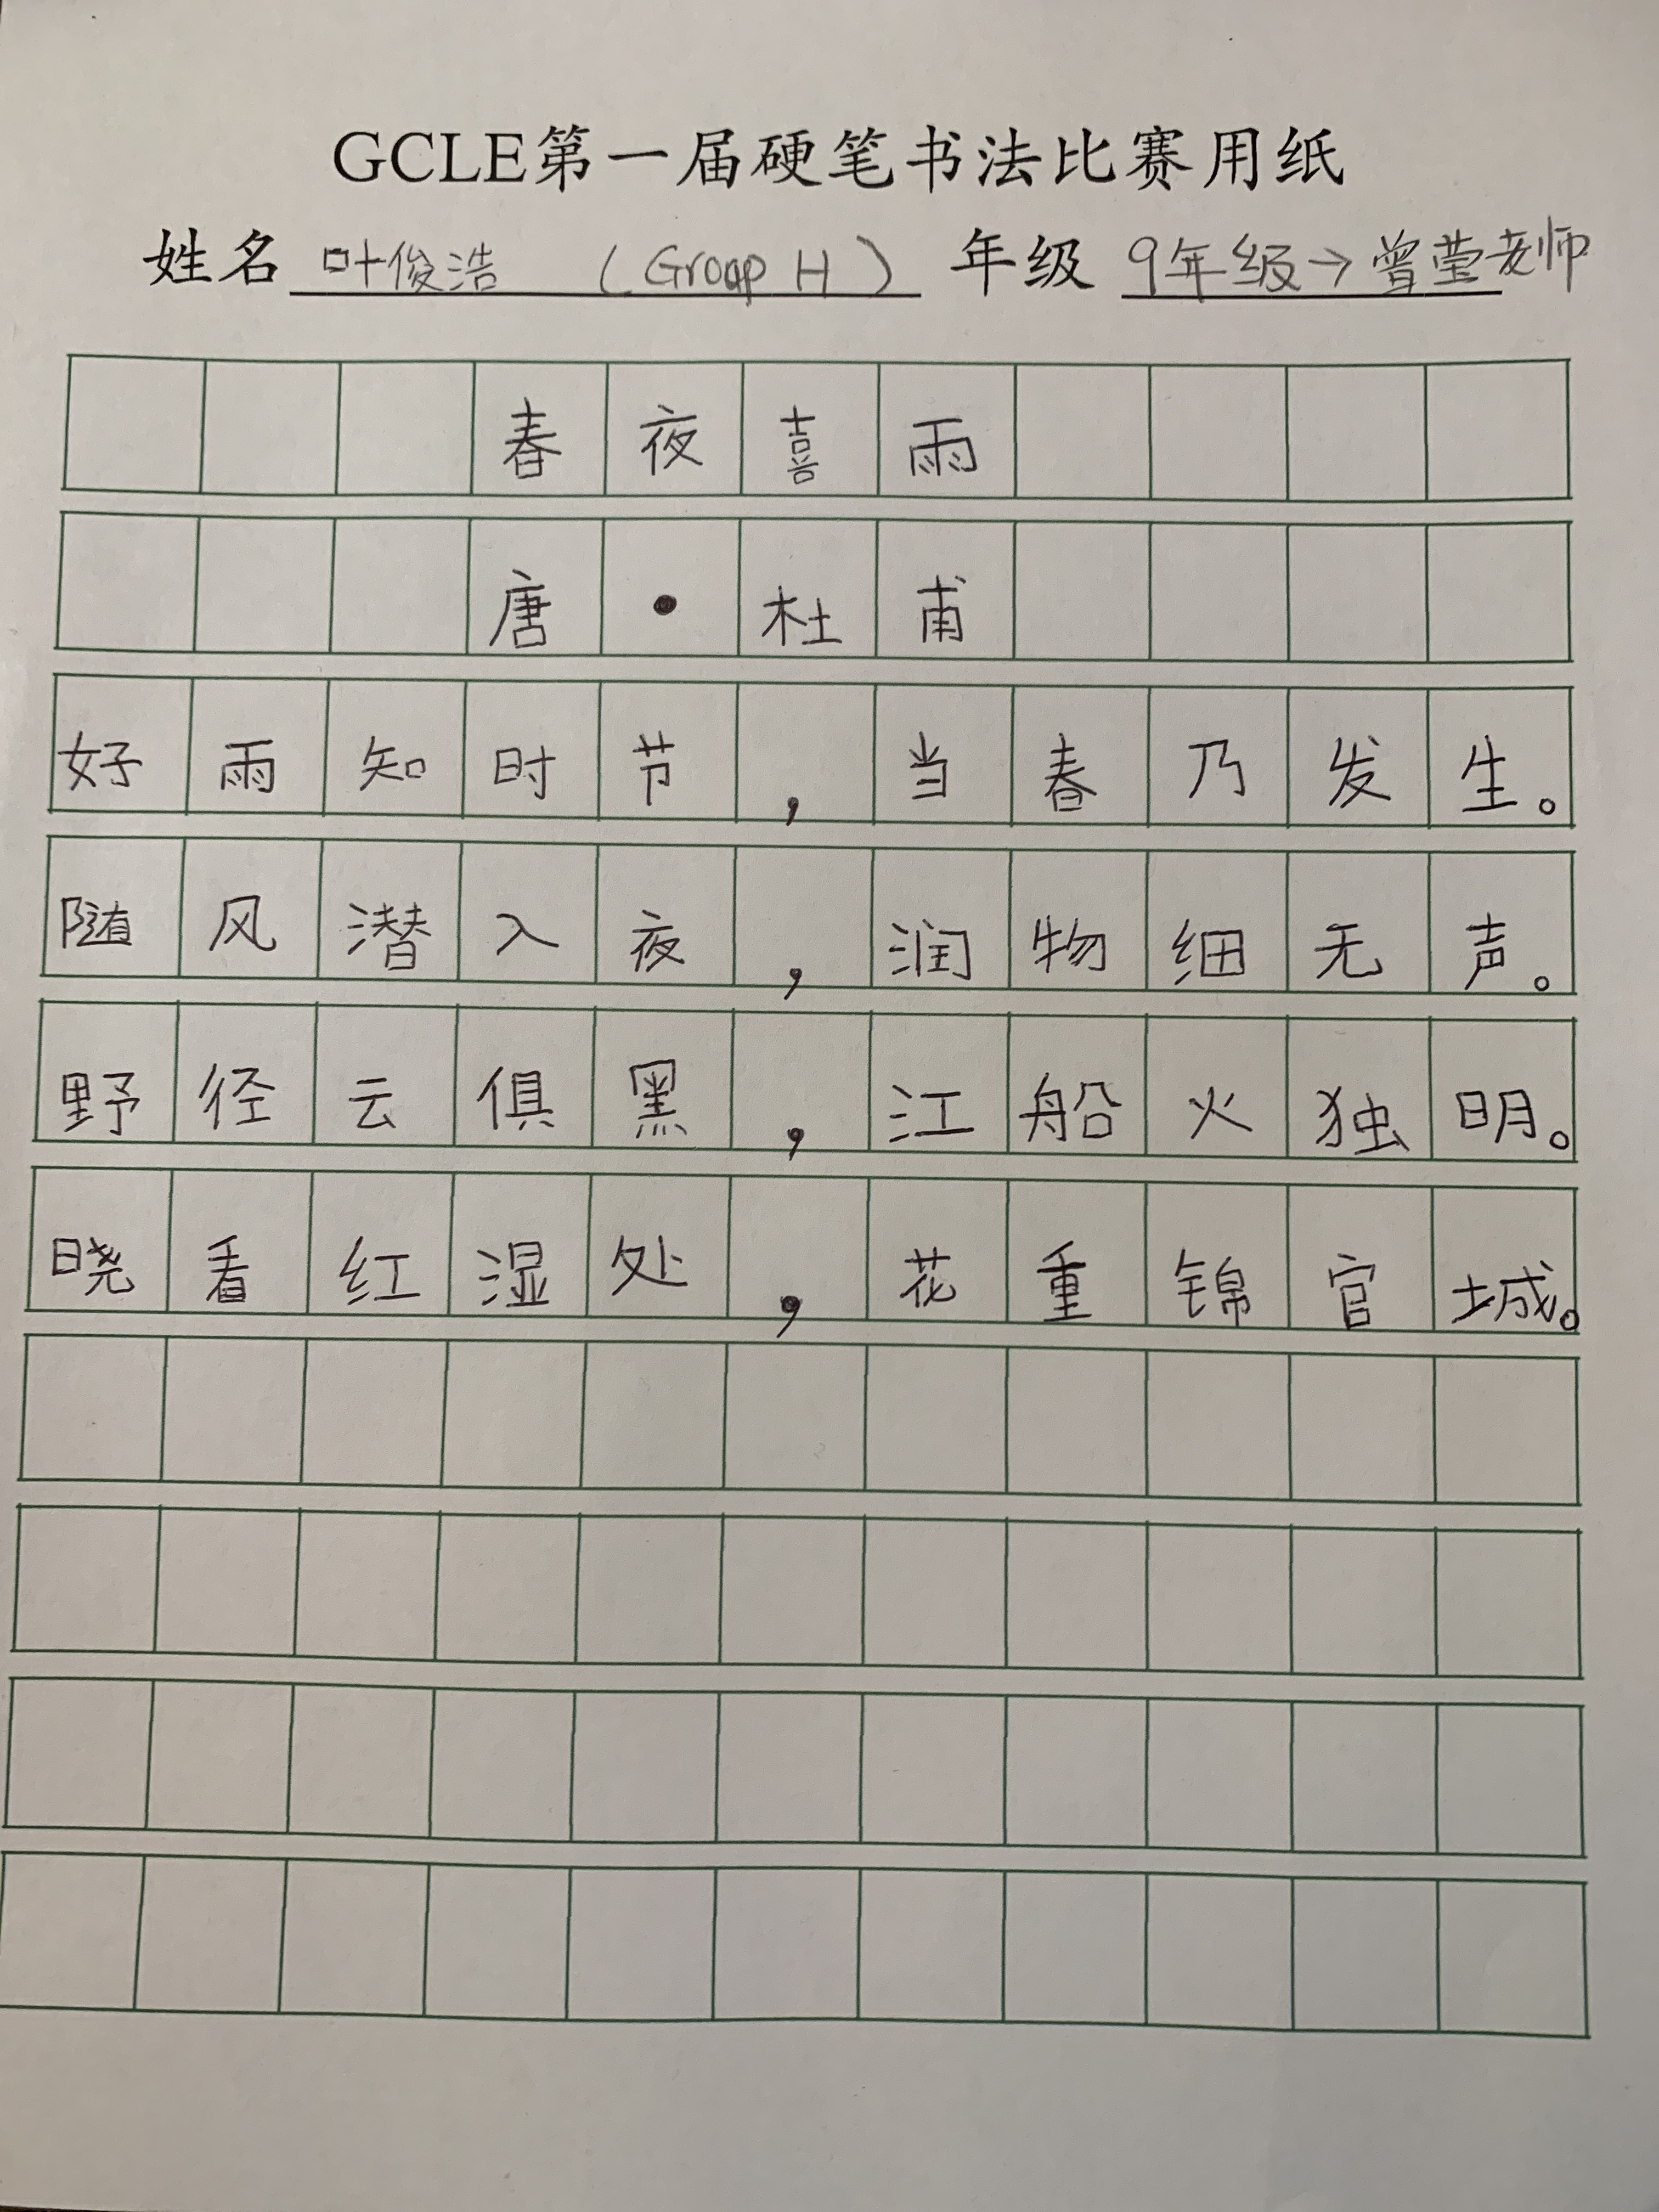 GCLE第一届硬笔书法比赛用纸
姓名 叶俊浩 (Group H) 年级 9年级→曾莹老师
春夜喜雨
唐•杜甫
好雨知时节，当春乃发生。
随风潜入夜，润物细无声。
野径云俱黑，江船火独明。
晓看红湿处，花重锦官城。